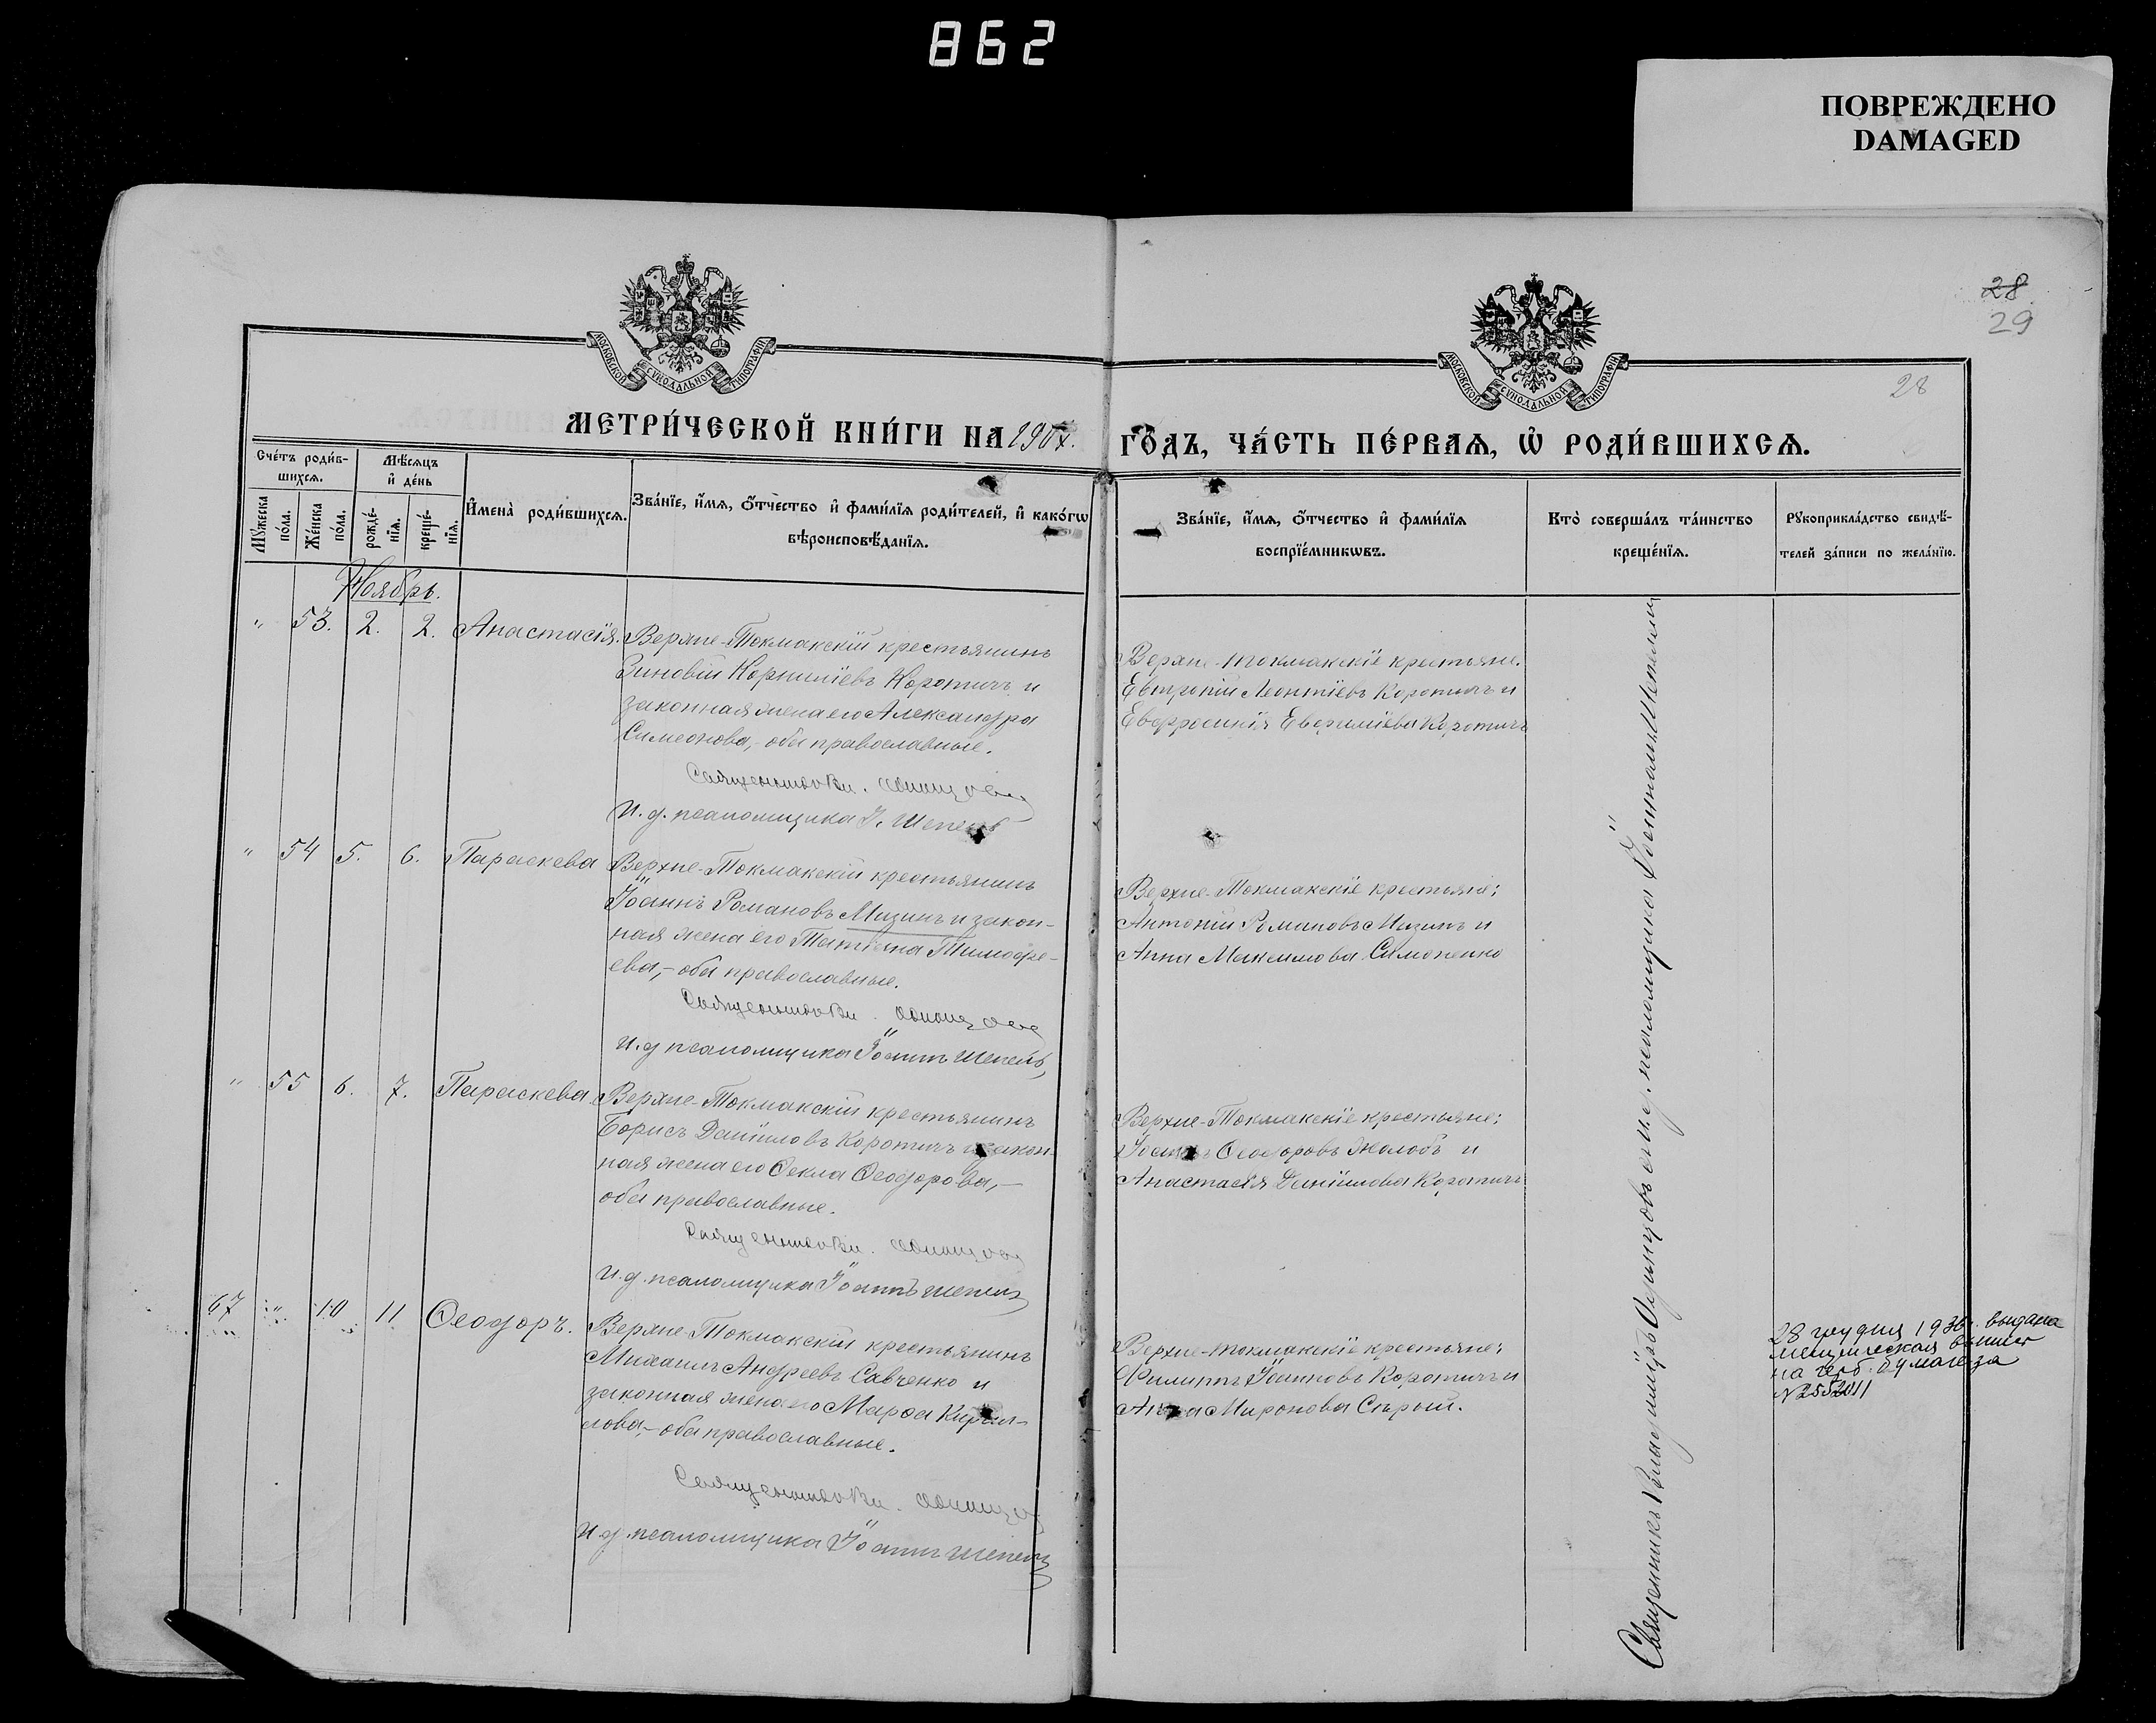 862
ПОВРЕЖДЕНО
DAMAGED
28
29
28
МОСКОВСКОЙ СѴНОДАЛЬНОЙ ТИПОГРАФІИ
МОСКОВСКОЙ СѴНОДАЛЬНОЙ ТИПОГРАФІИ
МЕТРИ́ЧЕСКОЙ КНИ́ГИ НА
ГО́ДЪ, ЧА́СТЬ ПЕ́РВАѦ, Ѡ҆ РОДИ́ВШИХСѦ.
Сче́тъ роди́в-
шихсѧ.
Мѣ́сѧцъ
и҆ де́нь
Мꙋ́жеска
по́ла.
Же́нска
по́ла.
рожде́-
нїѧ.
креще́-
нїѧ.
И҆мена̀ роди́вшихсѧ.
Зва́нїе, и҆́мѧ, ѻ҆́тчество и҆ фами́лїѧ роди́телей, и҆ како́гѡ
вѣроисповѣ́данїѧ.
Зва́нїе, и҆́мѧ, ѻ҆́тчество и҆ фами́лїѧ
воспрїе́мникѡвъ.
Кто̀ соверша́лъ та́инство
креще́нїѧ.
Рꙋкоприкла́дство свидѣ́-
телей за́писи по жела́нїю.
Ноябрь.
" 53. 2. 2. Анастасія.
Верхне-Токмакскій крестьянинъ
Зиновій Корниліевъ Коротичъ и
законная жена его Александра
Симеонова,- оба православные.
Священникъ Вл. Одинцовъ
И. д. псаломщика І. Шепель
Верхне-Токмакскіе крестьяне:
Евтропій Леонтіевъ Коротичъ и
Евфросинія Евфиміева Коротичъ
" 54 5. 6. Параскева
Верхне-Токмакскій крестьянинъ
Іоаннъ Романовъ Мизинъ и закон-
ная жена его Татіана Тимофе-
ева,- оба православные.
Священникъ Вл. Одинцовъ
И. д псаломщика Іоаннъ Шепель
Верхне-Токмакскіе крестьяне:
Антоній Романовъ Мизинъ и
Анна Максимова Симоненко
" 55 6. 7. Параскева.
Верхне-Токмакскій крестьянинъ
Борисъ Даніиловъ Коротичъ и закон-
ная жена его Ѳекла Ѳеодорова,-
оба православные.
Священникъ Вл. Одинцовъ
И. д. псаломщика Іоаннъ Шепель
Верхне-Токмакскіе крестьяне:
Іоаннъ Ѳеодоровъ Жолобъ и
Анастасія Даніилова Коротичъ
67 " 10 11 Ѳеодоръ.
Верхне-Токмакскій крестьянинъ
Михаилъ Андреевъ Савченко и
законная жена его Марѳа Кирил-
лова,- оба православные.
Священникъ Вл. Одинцовъ
И. д. псаломщика Іоаннъ Шепель
Верхне-Токмакскіе крестьяне:
Филиппъ Іоанновъ Коротичъ и
Анна Миронова Сѣрый.
Священникъ Владиміръ Одинцовъ съ и. д. псаломщика Іоанномъ Шепелемъ
28 грудня 1936г. выдана
метрическая выпись
на герб. бумаге за
№2552011